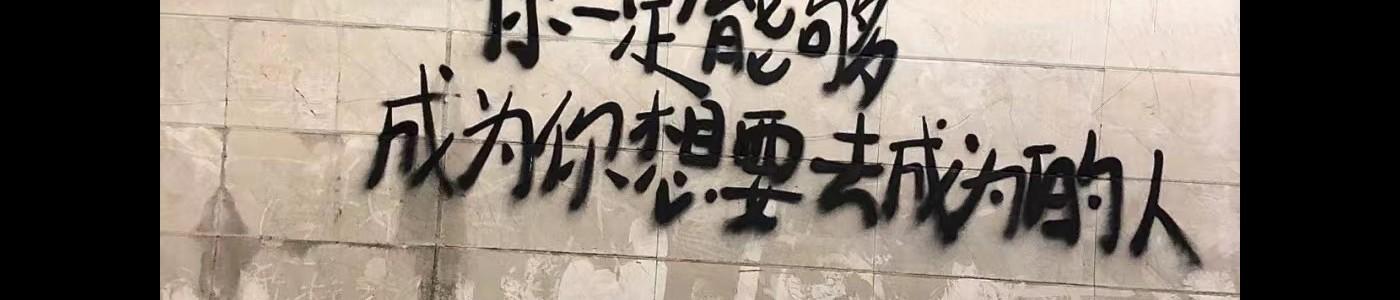 你一定能够
成为你想要去成为的人